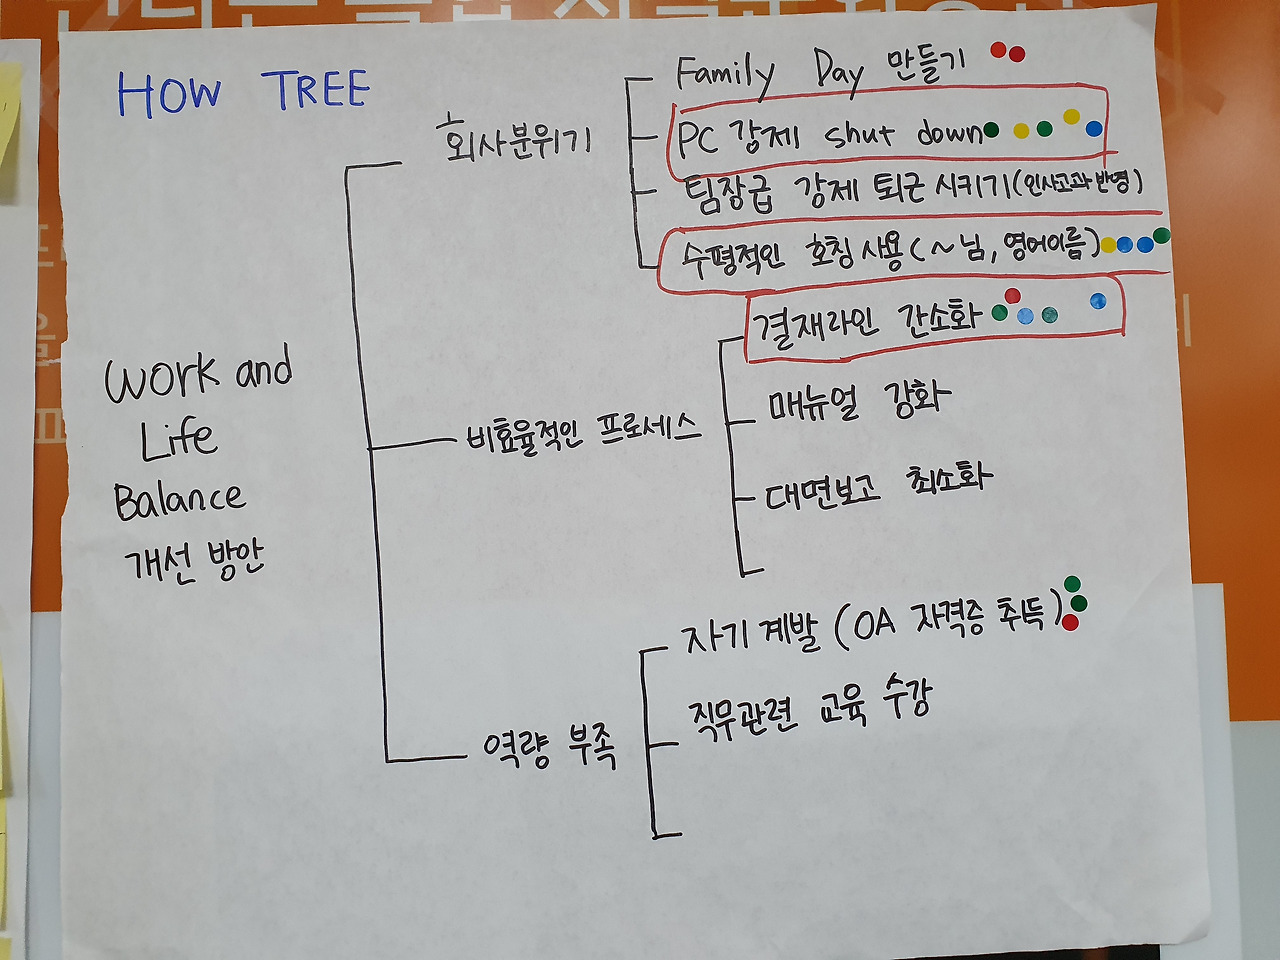 HOW TREE
Work and
Life
Balance
개선 방안
회사분위기
Family Day 만들기
PC 강제 shut down
팀장급 강제 퇴근 시키기(인사고과 반영)
수평적인 호칭 사용(~님, 영어이름)
비효율적인 프로세스
결재라인 간소화
매뉴얼 강화
대면보고 최소화
역량 부족
자기계발 (OA 자격증 취득)
직무관련 교육 수강